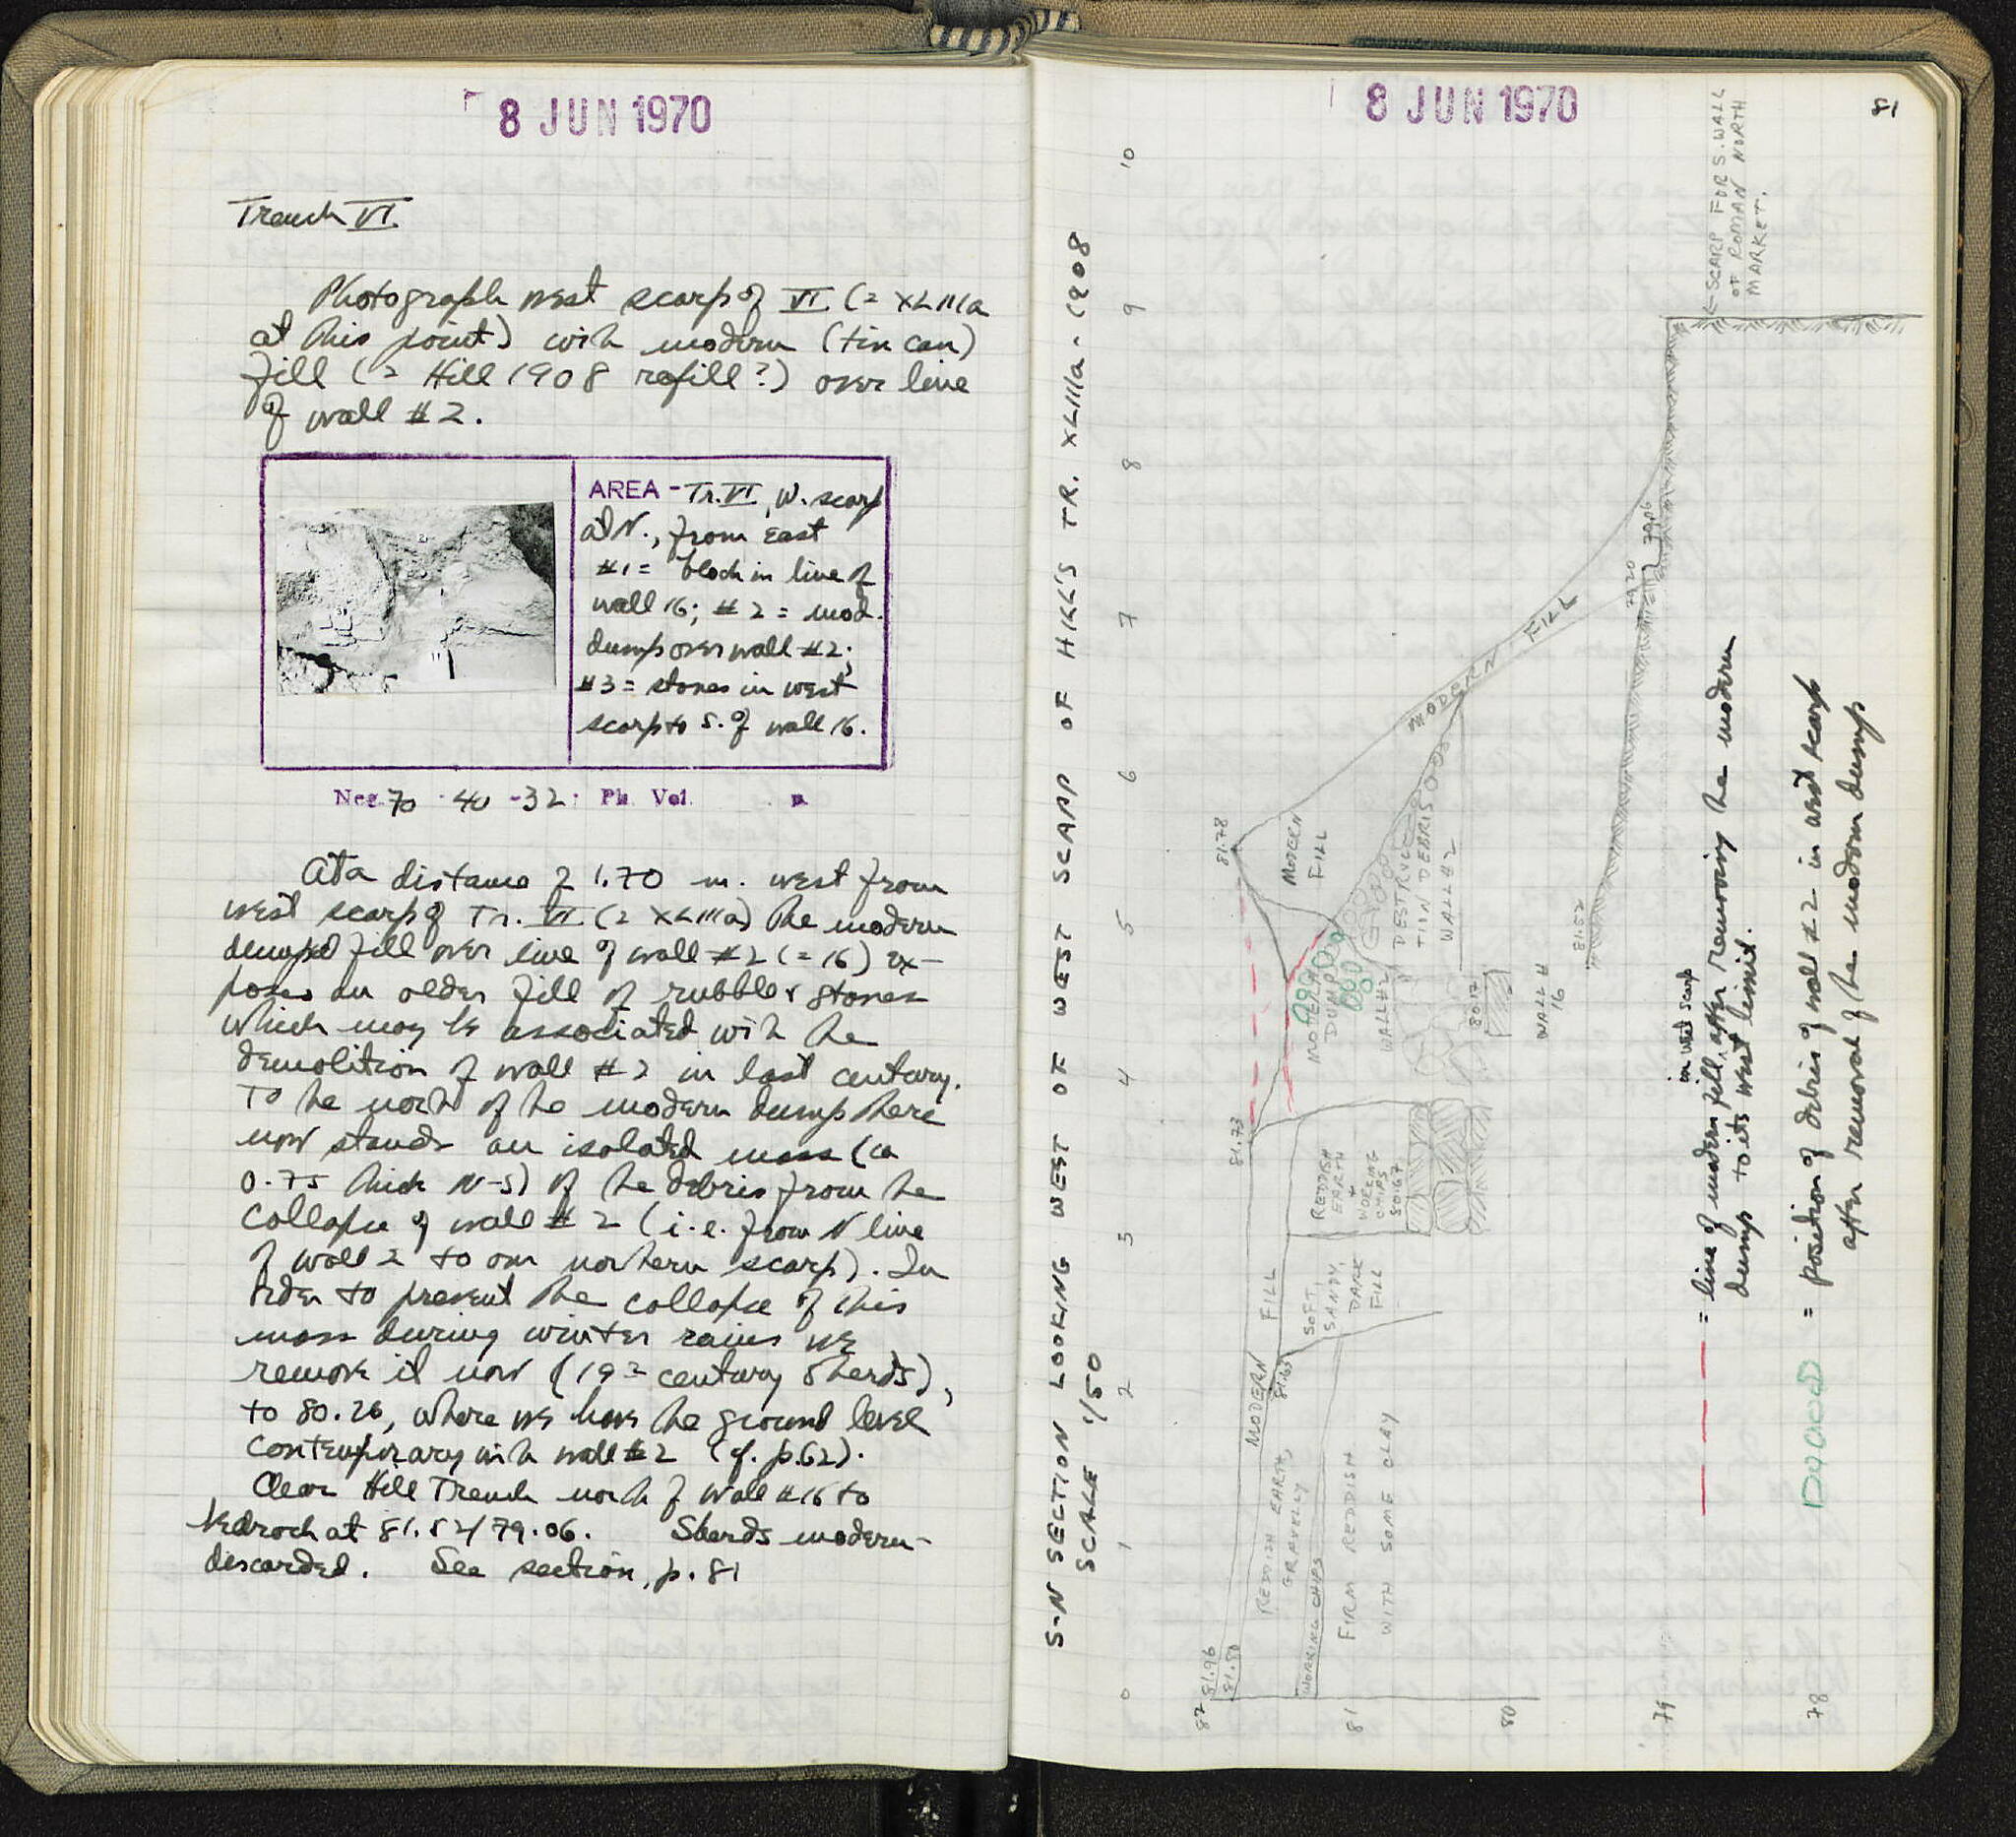 8 JUN 1970
Trench VI
Photograph west scarp of VI (= XLIIIa
at this point) with modern (tin can)
fill (= Hill 1908 refill?) over line
of wall #2.
AREA - Tr. VI, W. scarp
at N., from East
#1 = block in line of
wall 16; #2 = mod.
dump over wall #2;
#3 = stones in west
scarp to S. of wall 16.
Neg. 70 - 40 - 32; Ph. Vol. p.
At a distance of 1.70 m. west from
west scarp of Tr. VI (= XLIIIa) the modern
dumped fill over line of wall #2 (= 16) ex-
poses an older fill of rubble & stones
which may be associated with the
demolition of wall #2 in last century.
To the north of the modern dump there
now stands an isolated mass (ca
0.75 thick N-S) of the debris from the
collapse of wall #2 (i.e. from N line
of wall 2 to our northern scarp). In
order to prevent the collapse of this
mass during winter rains we
remove it now (19th century sherds),
to 80.26, where we have the ground level
contemporary with wall #2 (cf. p.62).
Clear Hill Trench north of wall #16 to
bedrock at 81.52/79.06. Sherds modern-
discarded. See section, p. 81
8 JUN 1970
81
S-N SECTION LOOKING WEST OF WEST SCARP OF HILL'S TR. XLIIIa - (1908
SCALE 1/50
0 1 2 3 4 5 6 7 8 9 10
82 81 80 79 78
81.96
81.80
MODERN FILL
81.65
81.73
81.78
REDDISH EARTH,
GRAVELLY
WORKING CHIPS
FIRM REDDISH
WITH SOME CLAY
SOFT,
SANDY,
DARK
FILL
REDDISH
EARTH
+
WORKING
CHIPS
80.67
MODERN
DUMP
WALL #2
MODERN
FILL
DESTRUC-
TION DEBRIS
WALL #2
MODERN FILL
80.17
WALL #
16
81.52
79.20
79.06
← SCARP FOR S. WALL
OF ROMAN NORTH
MARKET.
in west scarp
= line of modern fill, after removing the modern
dump to its west limit.
= position of debris of wall #2 in west scarp
after removal of the modern dump